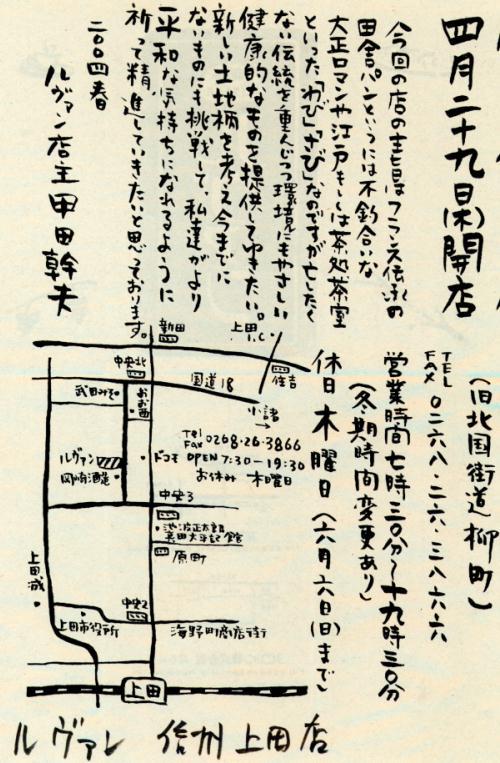 四月二十九日(木)開店
今回の店の主旨はフランス伝承の
田舎パンというには不釣合いな
大正ロマンや江戸もしくは茶処茶室
といった「わび」「さび」なのですが亡したく
ない伝統を重んじつつ環境にもやさしい
健康的なものを提供してゆきたい。
新しい土地柄を考え今までに
ないものにも挑戦して、私達がより
平和な気持ちになれるように
祈って精進していきたいと思っております。
二〇〇四春
ルヴァン店主甲田幹夫
(旧北国街道柳町)
TEL
FAX 〇二六八・二六・三八六六
営業時間七時三〇分〜十九時三〇分
(冬期時間変更あり)
休日 木曜日 (六月六日(日)まで)
新田
上田I.C
中央北
国道18
住吉
小諸
武田みそ
おお西
Tel
Fax 0268-26-3866
OPEN 7:30-19:30
お休み 木曜日
ルヴァン
岡崎酒造
ドコモ
中央3
池波正太郎
真田太平記館
原町
上田城
中央2
上田市役所
海野町商店街
上田
ルヴァン 信州上田店